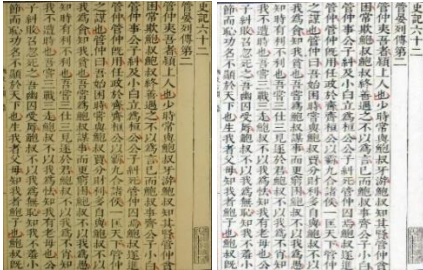 史記六十二
管晏列傳第二
管仲夷吾者潁上人也少時常與鮑叔牙游鮑叔知其賢管仲貧
困常欺鮑叔鮑叔終善遇之不以為言已而鮑叔事齊公子小
管仲事公子糾及小白立為桓公公子糾死管仲囚焉鮑叔遂進
管仲管仲既用任政於齊齊桓公以霸九合諸侯一匡天下管仲
之謀也管仲曰吾始困時嘗與鮑叔賈分財利多自與鮑叔不以
我為貪知我貧也吾嘗為鮑叔謀事而更窮困鮑叔不以我為愚
知時有利不利也吾嘗三仕三見逐於君鮑叔不以我為不肖知
我不遭時也吾嘗三戰三走鮑叔不以我為怯知我有老母也公
子糾敗召忽死之吾幽囚受辱鮑叔不以我為無恥知我不羞小
節而恥功名不顯於天下也生我者父母知我者鮑子也鮑叔既
史記六十二
管晏列傳第二
管仲夷吾者潁上人也少時常與鮑叔牙游鮑叔知其賢管仲貧
困常欺鮑叔鮑叔終善遇之不以為言已而鮑叔事齊公子小
管仲事公子糾及小白立為桓公公子糾死管仲囚焉鮑叔遂進
管仲管仲既用任政於齊齊桓公以霸九合諸侯一匡天下管仲
之謀也管仲曰吾始困時嘗與鮑叔賈分財利多自與鮑叔不以
我為貪知我貧也吾嘗為鮑叔謀事而更窮困鮑叔不以我為愚
知時有利不利也吾嘗三仕三見逐於君鮑叔不以我為不肖知
我不遭時也吾嘗三戰三走鮑叔不以我為怯知我有老母也公
子糾敗召忽死之吾幽囚受辱鮑叔不以我為無恥知我不羞小
節而恥功名不顯於天下也生我者父母知我者鮑子也鮑叔既